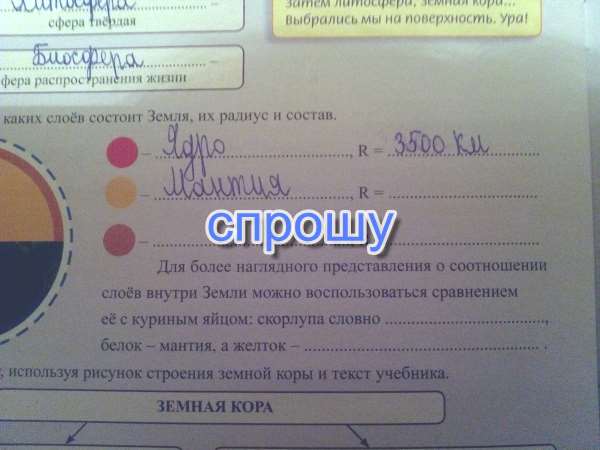 Литосфера
сфера твёрдая
затем литосфера, земная кора...
Выбрались мы на поверхность. Ура!
Биосфера
сфера распространения жизни
каких слоёв состоит Земля, их радиус и состав.
– Ядро, R = 3500 км
– Мантия, R =
спрошу
–
Для более наглядного представления о соотношении
слоёв внутри Земли можно воспользоваться сравнением
её с куриным яйцом: скорлупа словно ,
белок – мантия, а желток – .
, используя рисунок строения земной коры и текст учебника.
ЗЕМНАЯ КОРА